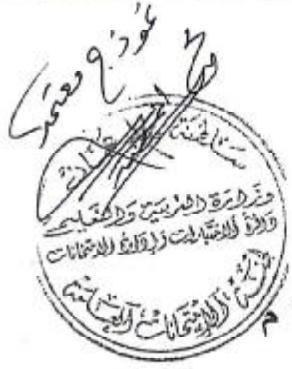 نموذج معتمد
وزارة التربية والتعليم
دائرة الاختبارات وإدارة الامتحانات
لجنة الامتحانات العامة